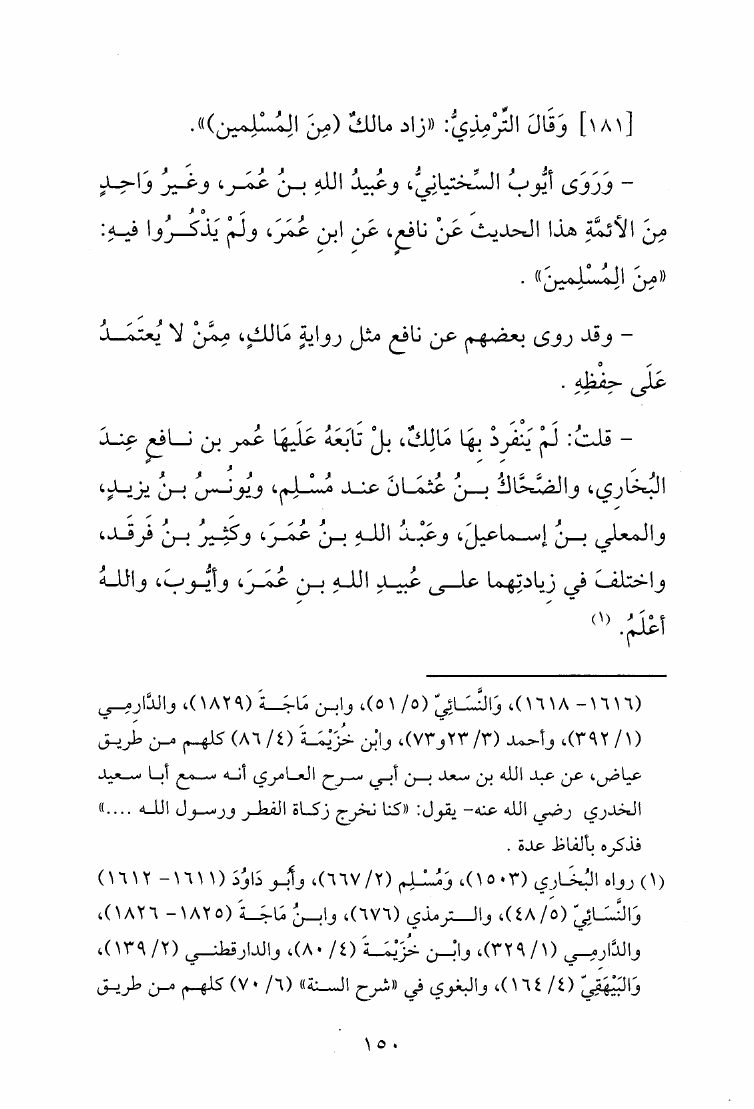 [١٨١] وَقَالَ التِّرْمِذِيُّ: «زاد مالكٌ (مِنَ الـمُسْلِمين)».
– وَرَوَى أيُّوبُ السِّختيانِيُّ، وعُبيدُ اللهِ بـنُ عُمَـر، وغَـيرُ وَاحِـدٍ
مِنَ الأئمَّةِ هذا الحديثَ عَنْ نافعٍ، عَنِ ابنِ عُمَرَ، ولَمْ يَذْكُــرُوا فيـهِ:
«مِنَ الـمُسْلِمينَ» .
– وقد روى بعضهم عن نافع مثل روايةِ مَالكٍ، مِمَّنْ لا يُعتَمَــدُ
عَلَى حِفْظِهِ .
– قلتُ: لَمْ يَنْفَردْ بِهَا مَالِكٌ، بلْ تَابَعَهُ عَلَيهَا عُمر بن نــافعٍ عِنـدَ
البُخَاري، والضَّحَّاكُ بــنُ عُثمَـانَ عنـد مُسْـلِمٍ، ويُونُـسُ بـنُ يزيـدٍ،
والمعلي بــنُ إسـماعيلَ، وعَبْـدُ اللـهِ بـنُ عُمَـرَ، وكَثِـيرُ بـنُ فَرقَـد،
واختلفَ في زِيادتِهما علــى عُبيـدِ اللـهِ بـنِ عُمَـرَ، وأيُّـوبَ، واللـهُ
أعْلَمُ. (١)
(١٦١٦– ١٦١٨)، وَالنَّسَائِيّ (٥/ ٥١)، وابـن مَاجَـةَ (١٨٢٩)، والدَّارِمـي
(١/ ٣٩٢)، وأحمد (٣/ ٢٣و٧٣)، وابْن خُزَيْمَـة (٤/ ٨٦) كلهـم مـن طريـق
عياض، عن عبد الله بن سعد بـن أبـي سـرح العـامري أنـه سـمع أبـا سـعيد
الخدري رضي الله عنه– يقول: «كنا نخرج زكـاة الفطـر ورسـول اللـه ....»
فذكره بألفاظ عدة .
(١) رواه البُخَـاري (١٥٠٣)، ومُسْـلِم (٢/ ٦٦٧)، وأَبُـو دَاوُدَ (١٦١١– ١٦١٢)
وَالنَّسَـائِيّ (٥/ ٤٨)، والـترمذي (٦٧٦)، وابـنُ مَاجَـةَ (١٨٢٥– ١٨٢٦)،
والدَّارِمـي (١/ ٣٢٩)، وابْـن خُزَيْمَـة (٤/ ٨٠)، والدارقطنـي (٢/ ١٣٩)،
وَالبَيْهَقِيّ (٤/ ١٦٤)، والبغوي في «شرح السـنة» (٦/ ٧٠) كلهـم مـن طريـق
١٥٠